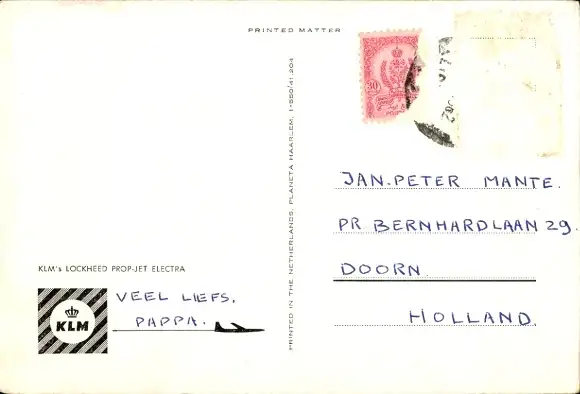 PRINTED MATTER
30
JAN-PETER MANTE.
PR BERNHARDLAAN 29.
DOORN
HOLLAND.
KLM's LOCKHEED PROP-JET ELECTRA
KLM
VEEL LIEFS,
PAPPA.
PRINTED IN THE NETHERLANDS, PLANETA HAARLEM, 1-550/41.204